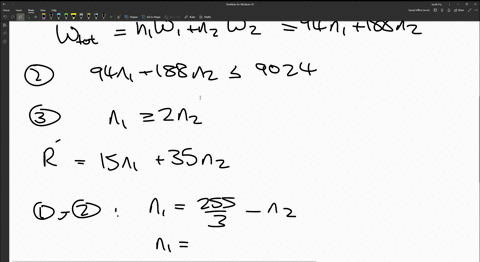 W_tot = n₁W₁ + n₂W₂ = 94n₁ + 188n₂
② 94n₁ + 188n₂ ≤ 9024
③ n₁ ≥ 2n₂
R = 15n₁ + 35n₂
① → ② : n₁ = 255/3 − n₂
n₁ =